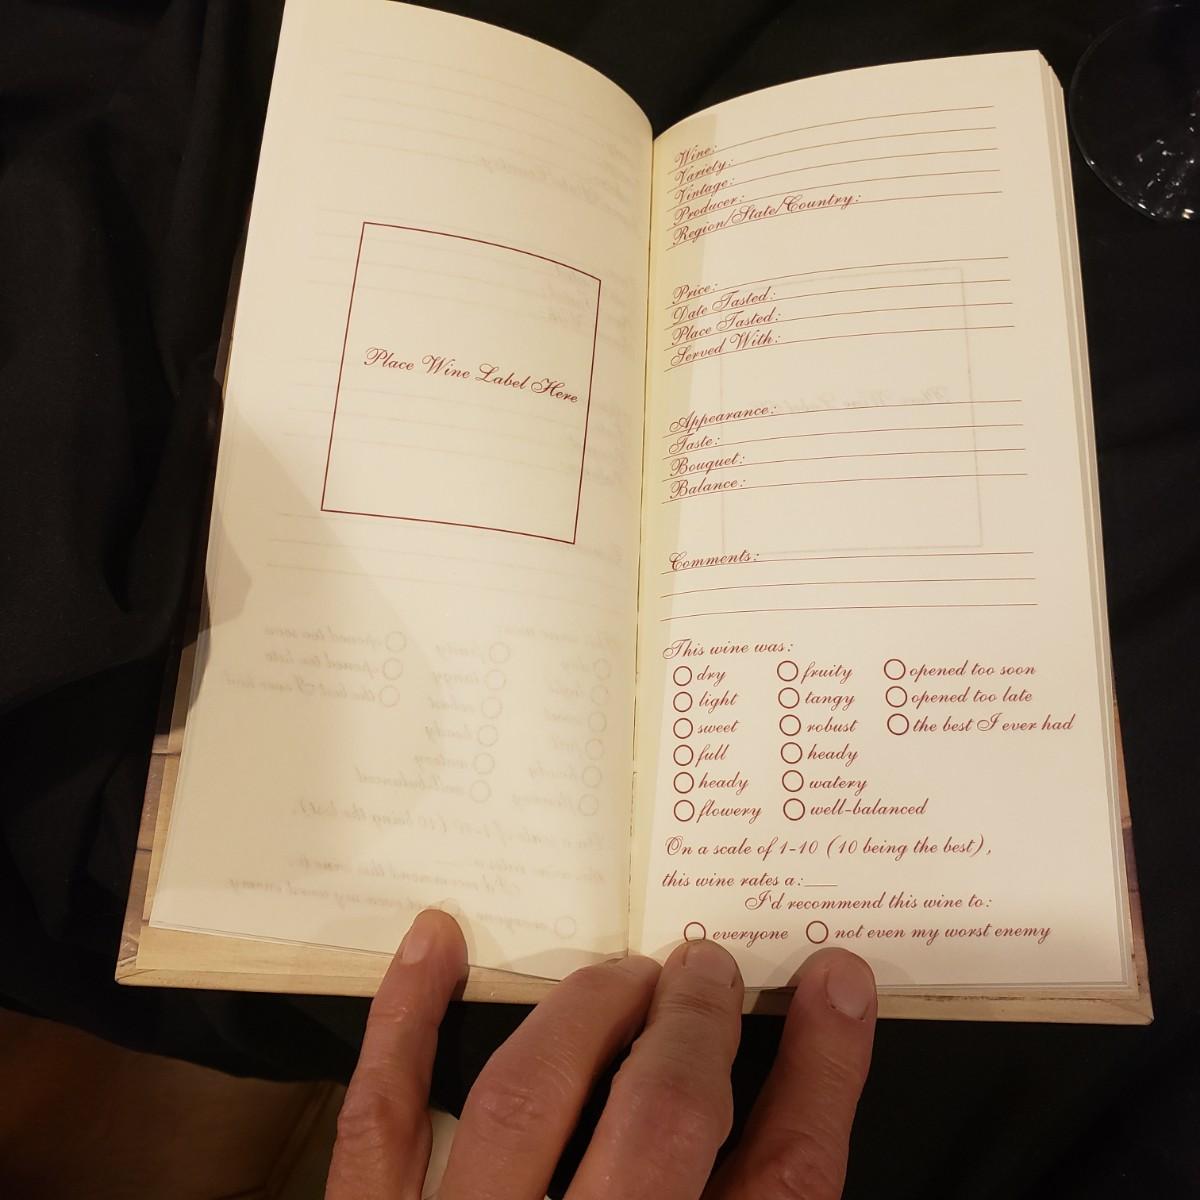 Place Wine Label Here
Wine:
Variety:
Vintage:
Producer:
Region/State/Country:
Price:
Date Tasted:
Place Tasted:
Served With:
Appearance:
Taste:
Bouquet:
Balance:
Comments:
This wine was:
dry fruity opened too soon
light tangy opened too late
sweet robust the best I ever had
full heady
heady watery
flowery well-balanced
On a scale of 1-10 (10 being the best),
this wine rates a:___
I'd recommend this wine to:
everyone not even my worst enemy